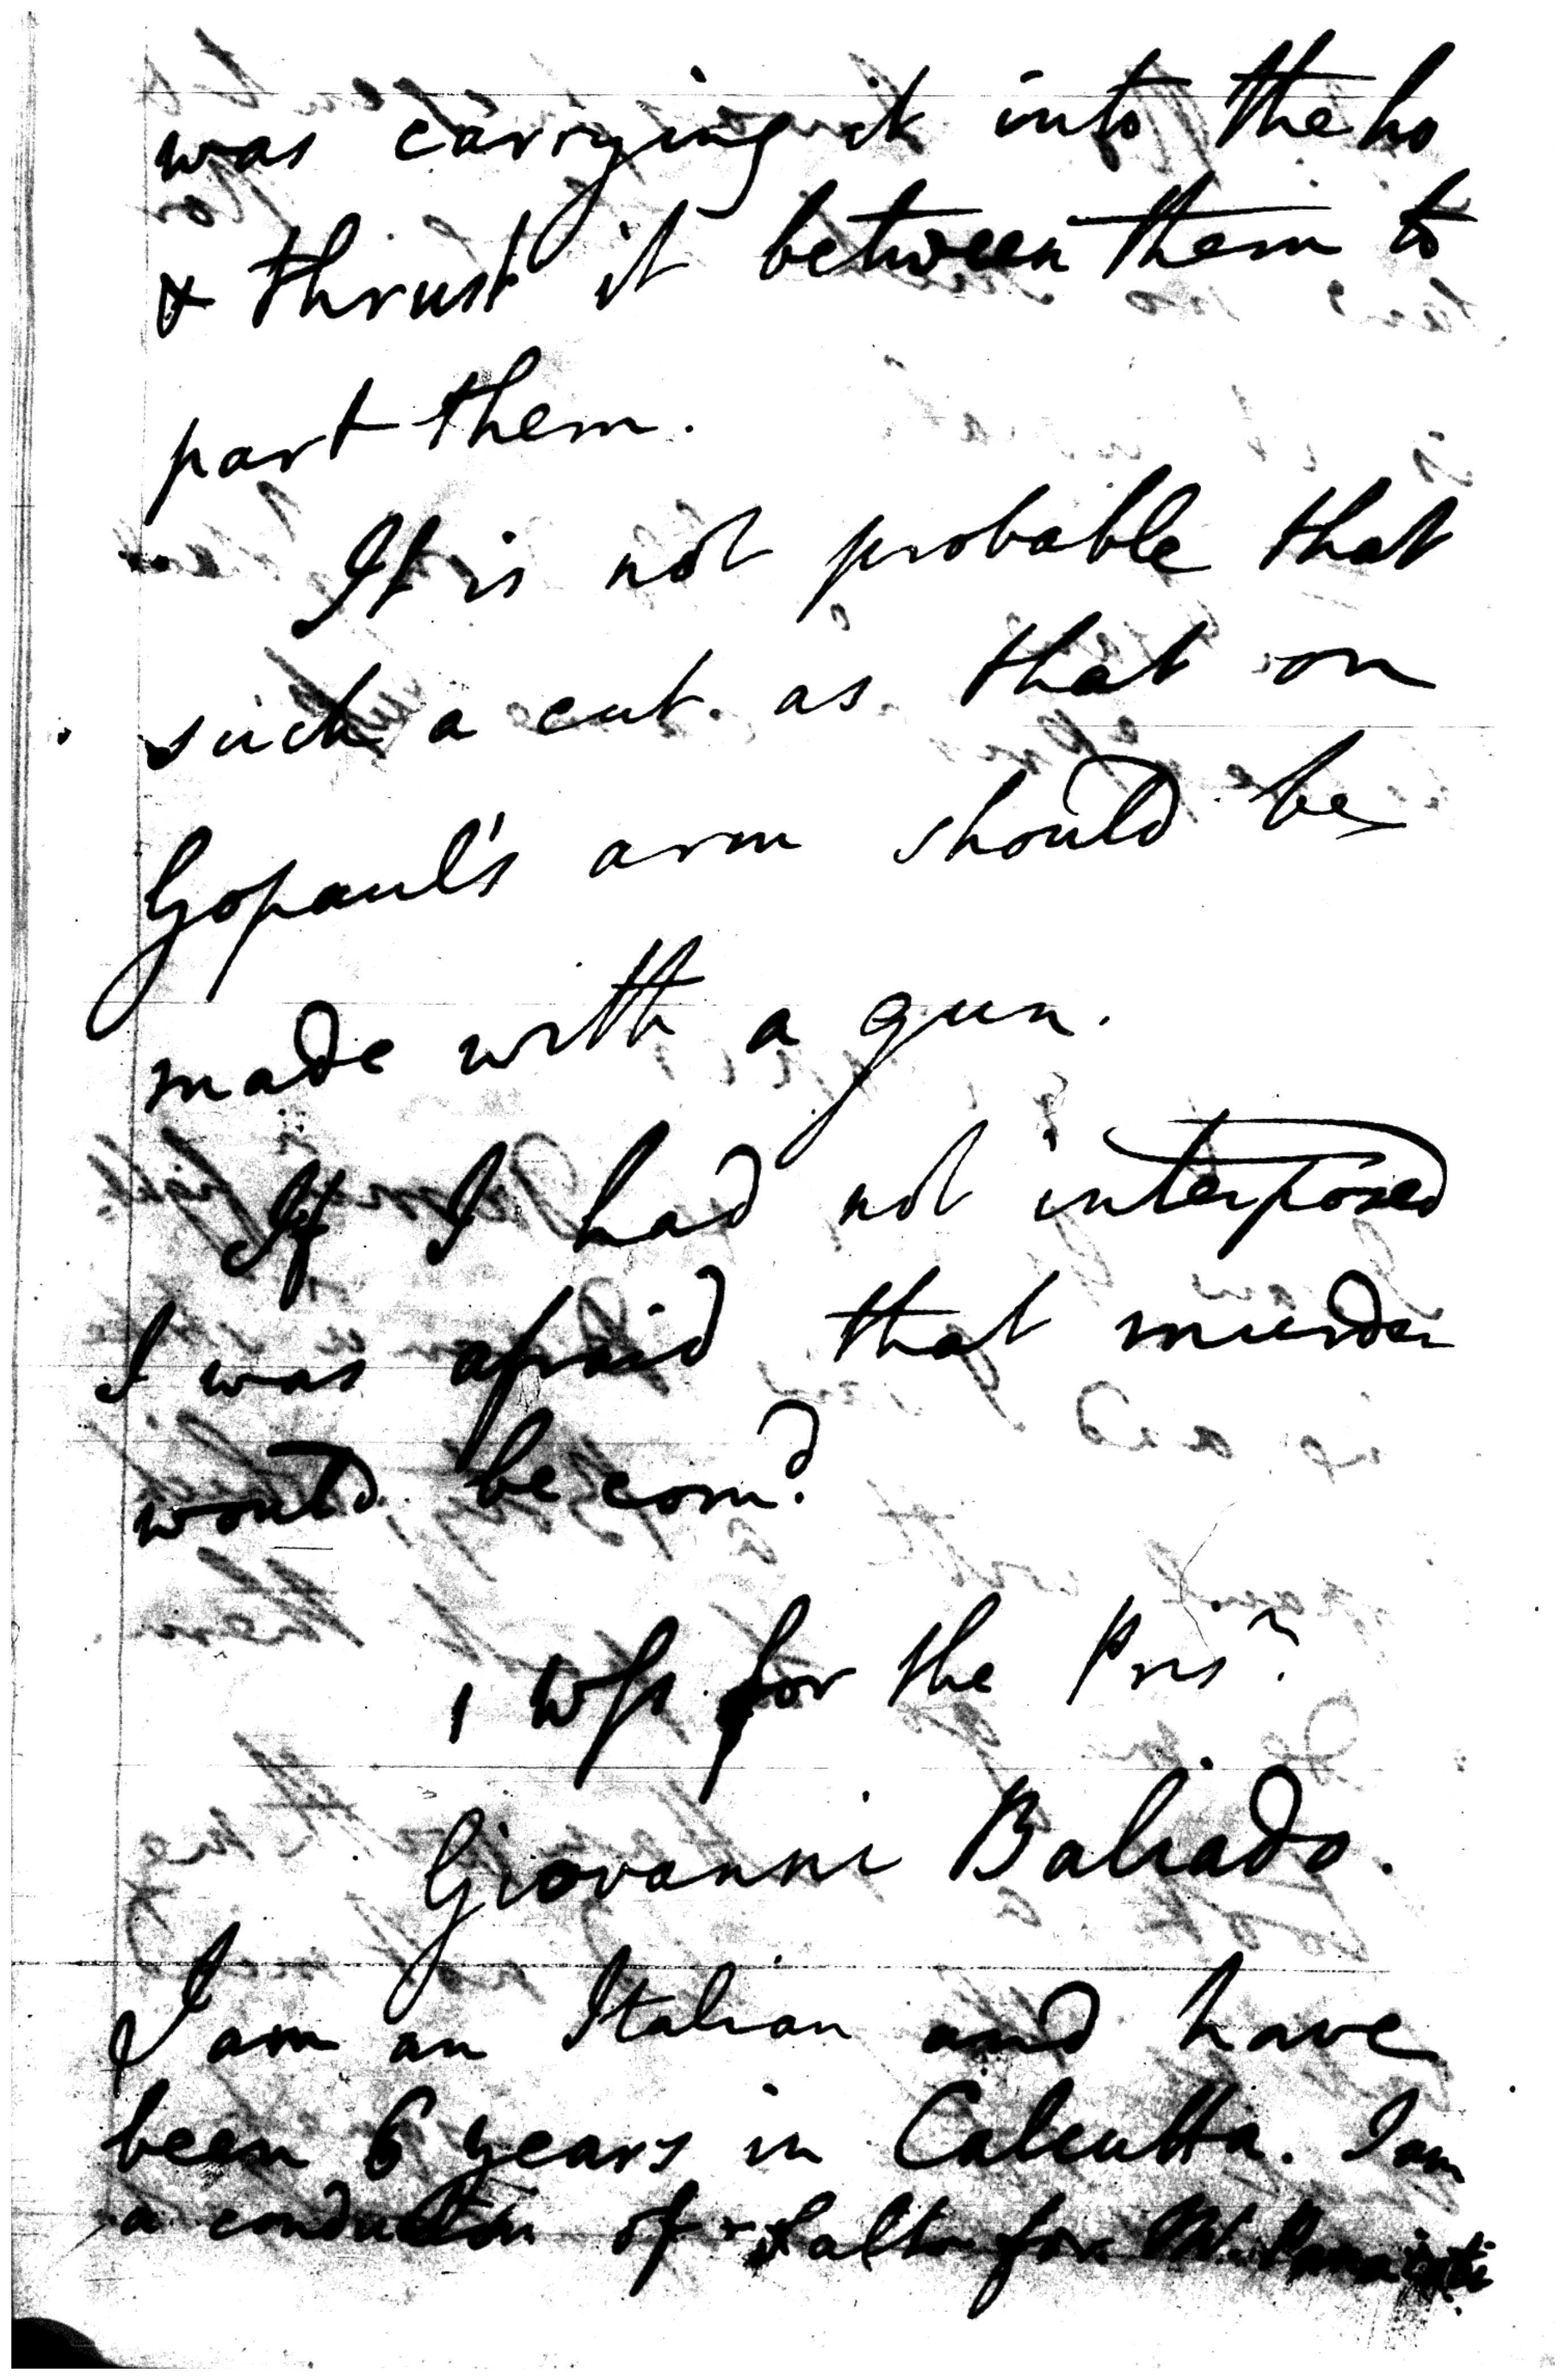 was carrying it into the ho
& thrust it between them to
part them.
It is not probable that
such a cut as that on
Gopaul's arm should be
made with a gun.
If I had not interposed
I was afraid that murder
would be com.d
1 Wss for the Prisr.
Giovanni Baliado.
I am an Italian and have
been 6 years in Calcutta. I am
a conductor of salts for Mr.